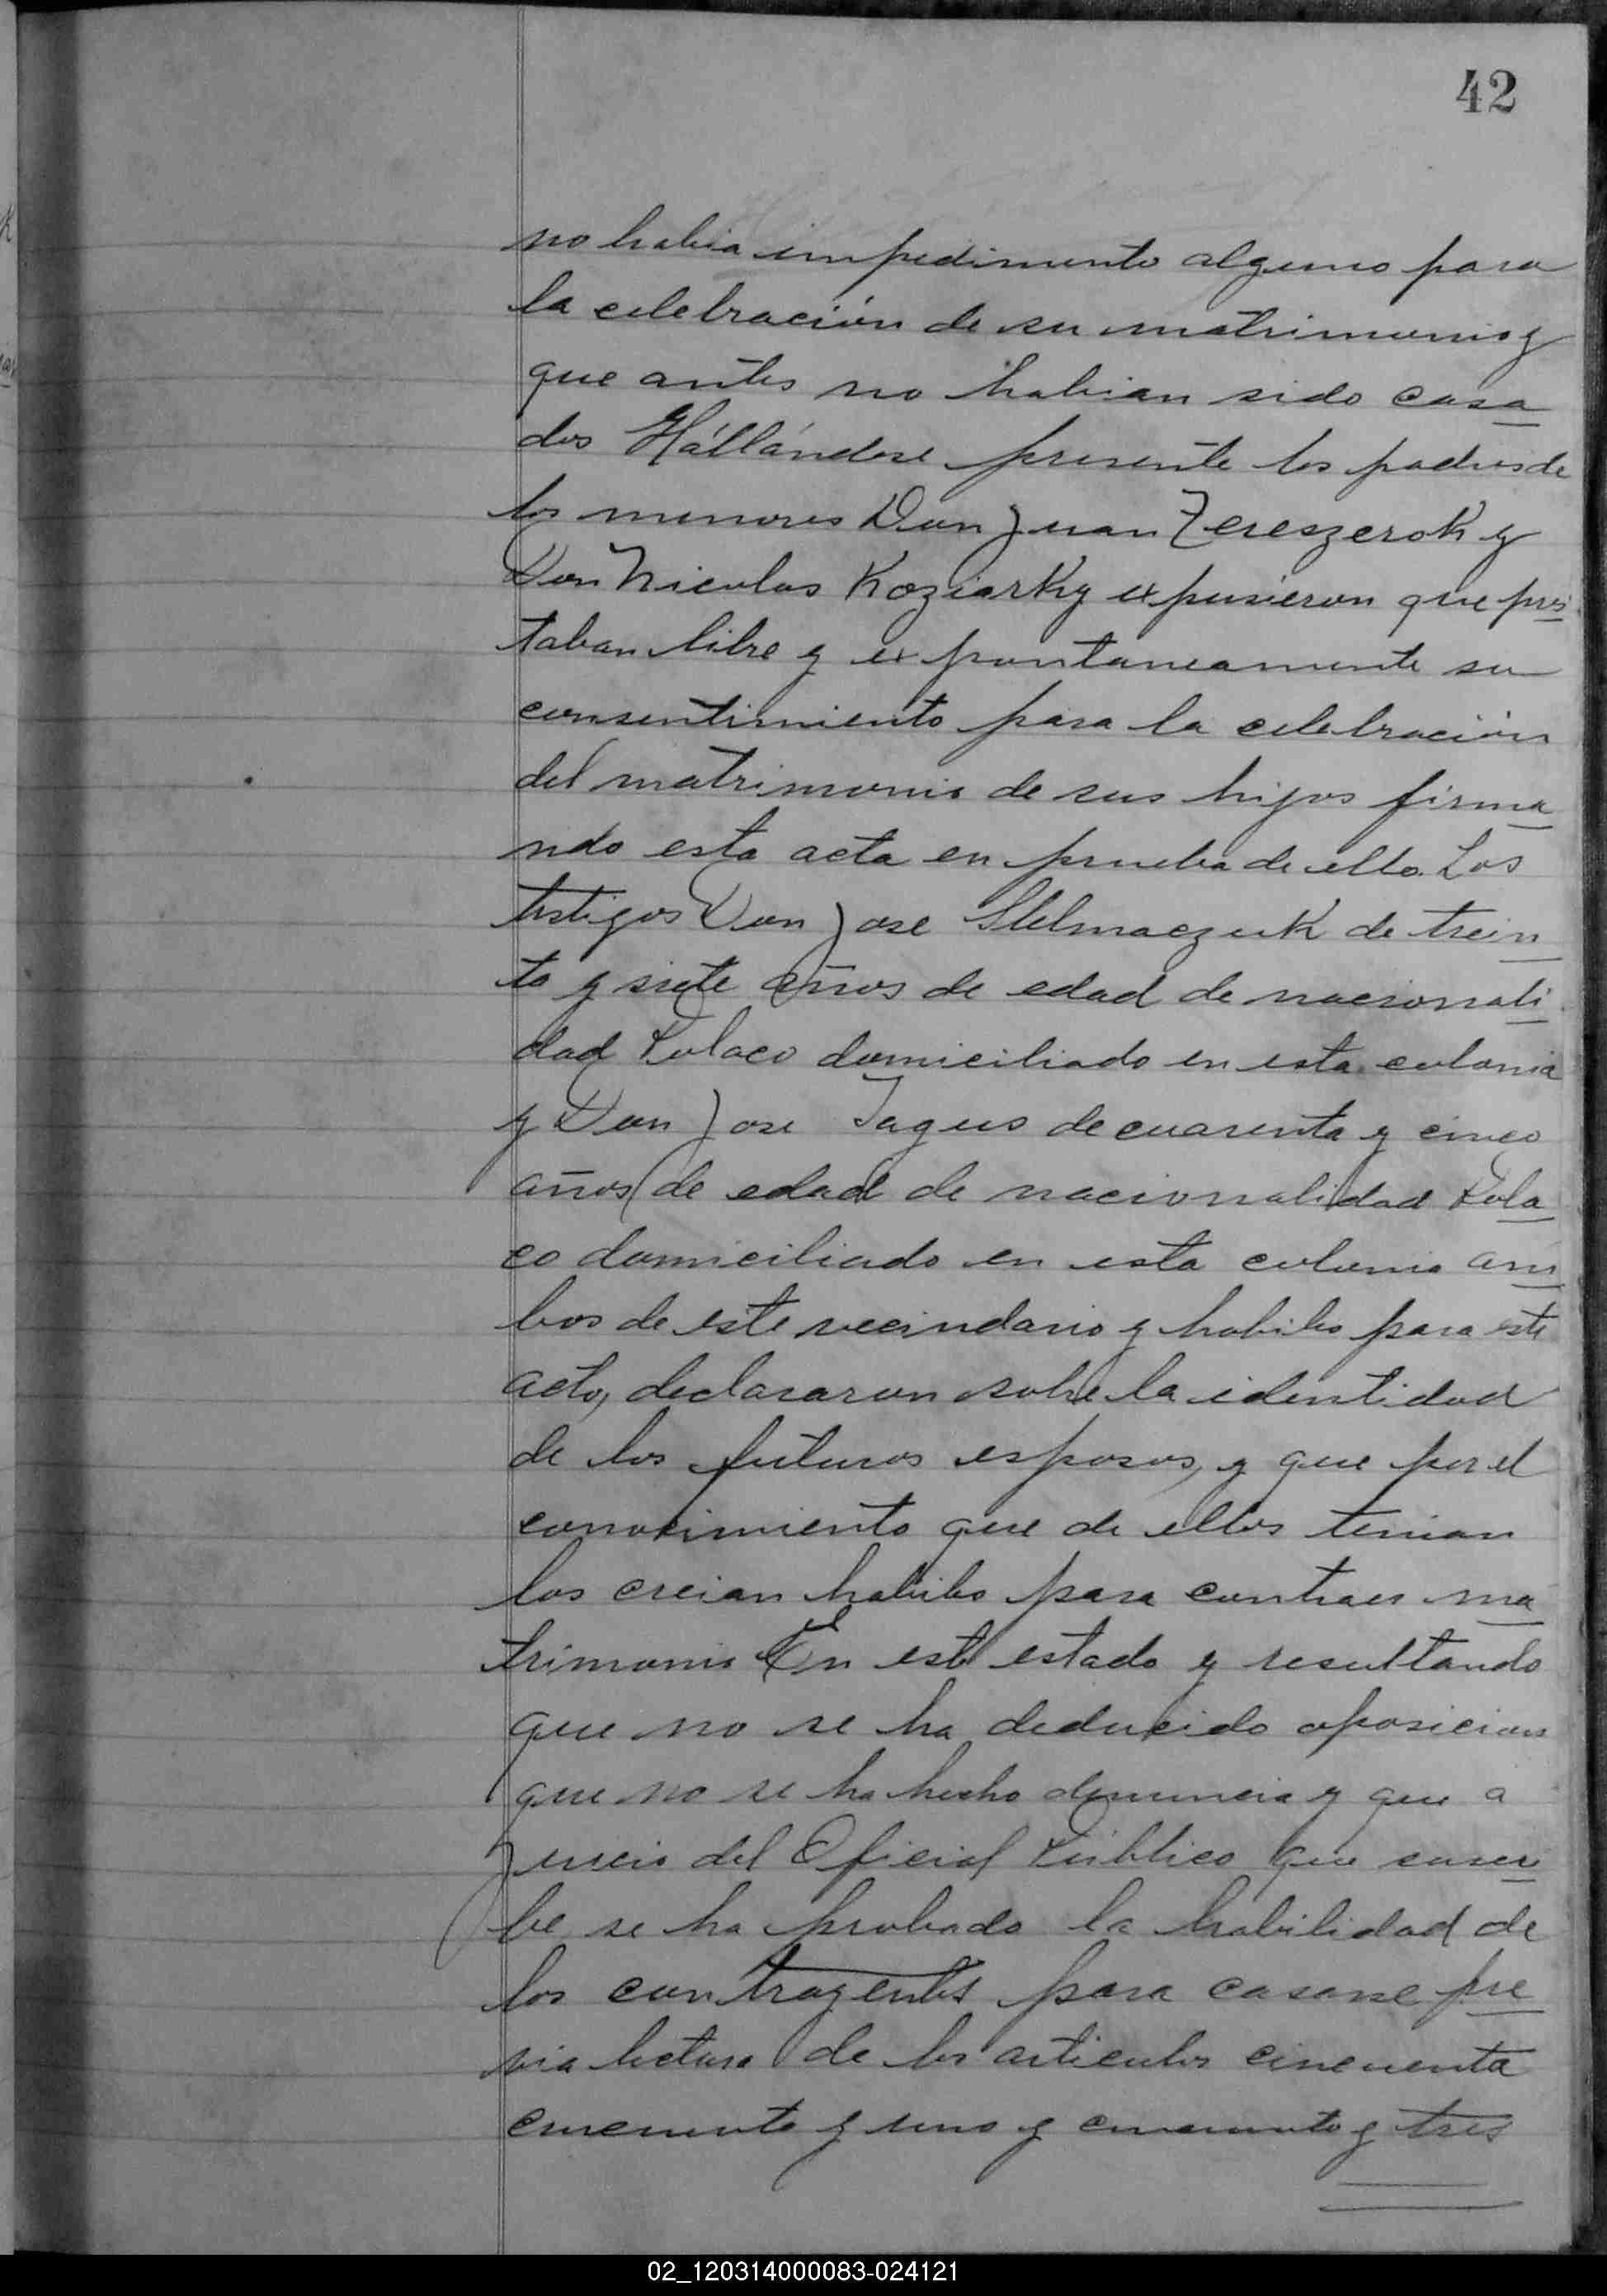 42
no habia impedimento alguno para
la celebración de su matrimonio y
que antes no habian sido casa
dos Hállándose presente los padres de
los menores Don Juan Zereszerok y
Don Nicolas Koziarky expusieron que pres
taban libre y expontaneamente su
consentimiento para la celebración
del matrimonio de sus hijos firma
ndo esta acta en prueba de ello. Los
testigos Don Jose Stelmaczuk de trein
ta y siete años de edad de nacionali
dad Polaco domiciliado en esta colonia
y Don Jose Tagus de cuarenta y cinco
años de edad de nacionalidad Pola
co domiciliado en esta colonia am
bos de este vecindario y habiles para este
acto, declararon sobre la identidad
de los futuros esposos, y que por el
conocimiento que de ellos tenian
los creian habiles para contraer ma
trimonio En este estado y resultando
que no se ha deducido oposicion
que no se ha hecho denuncia y que a
Juicio del Oficial Público que suscri
be se ha probado la habilidad de
los contrayentes para casarse pre
via lectura de los articulos cincuenta
cincuenta y uno y cincuenta y tres
02_120314000083-024121